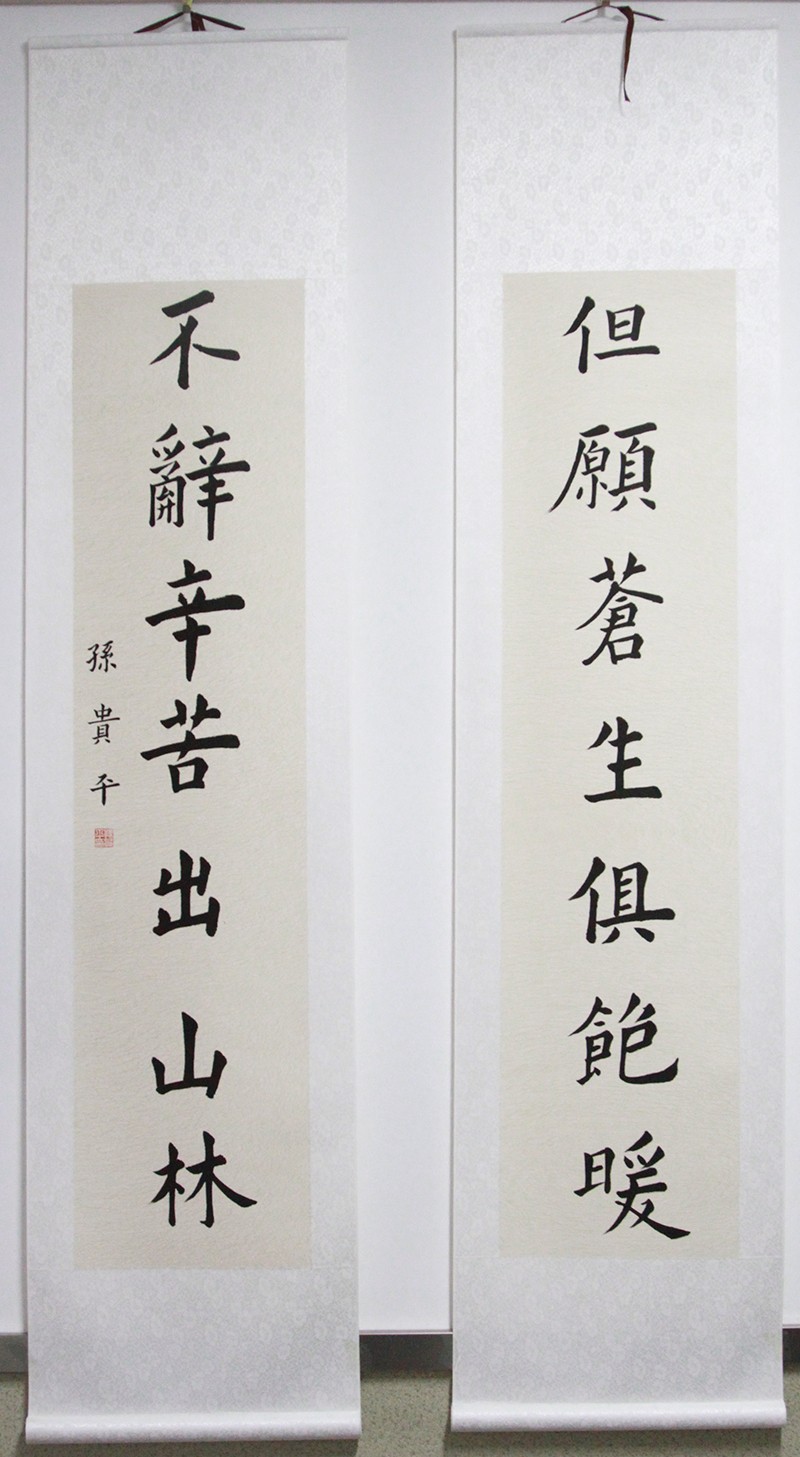 但願蒼生俱飽暖
不辭辛苦出山林
孫貴平